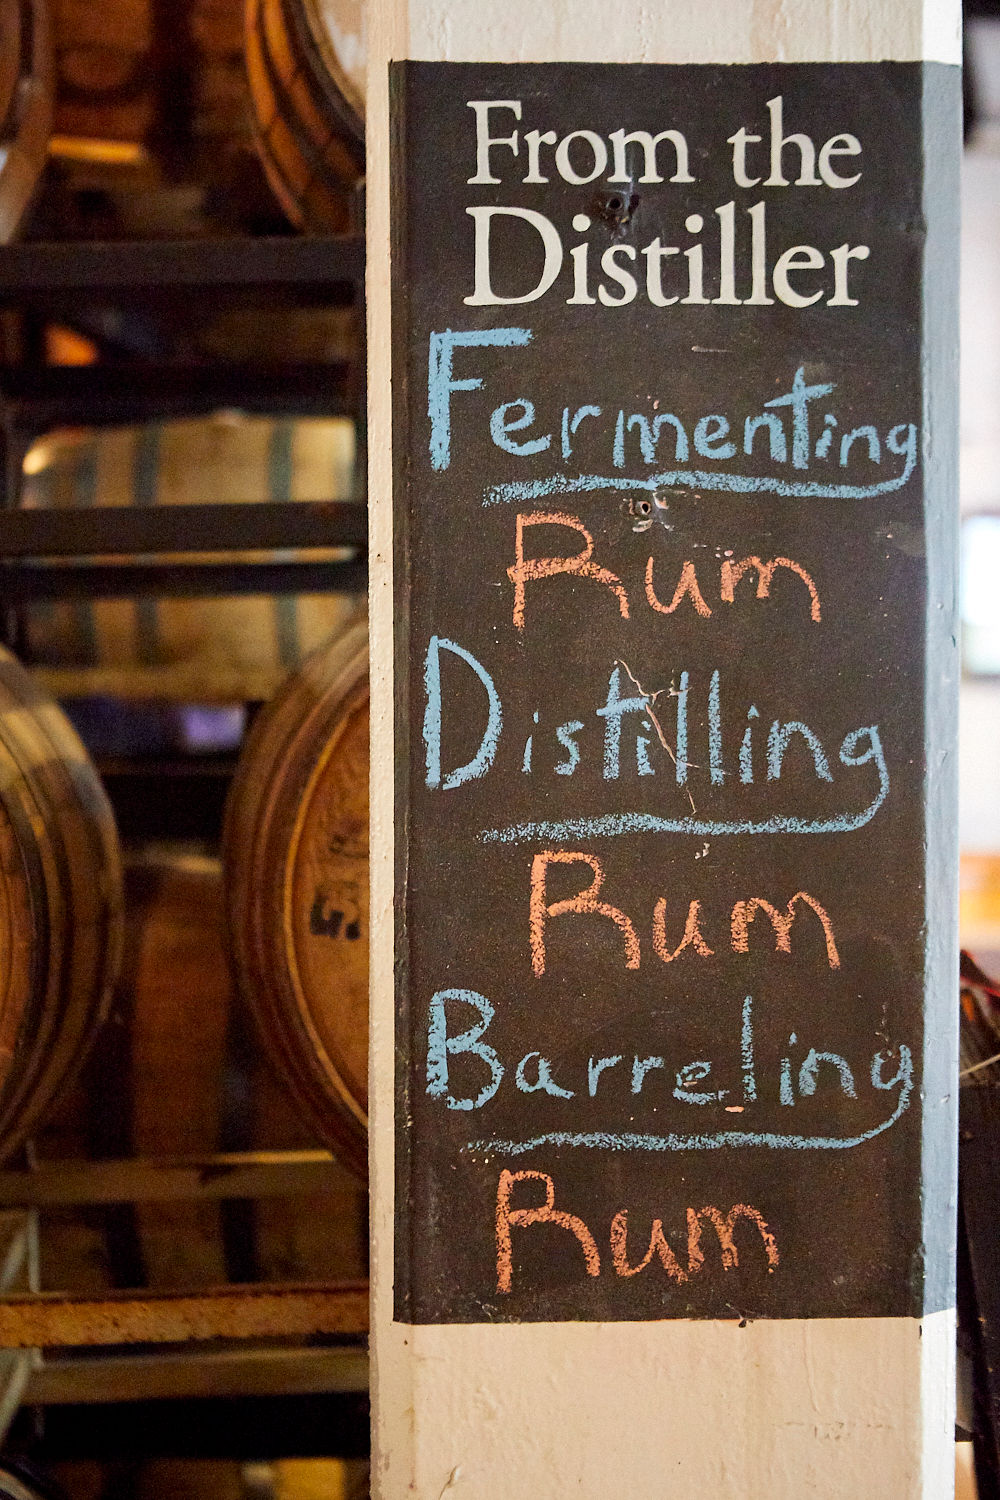 From the
Distiller
Fermenting
Rum
Distilling
Rum
Barreling
Rum